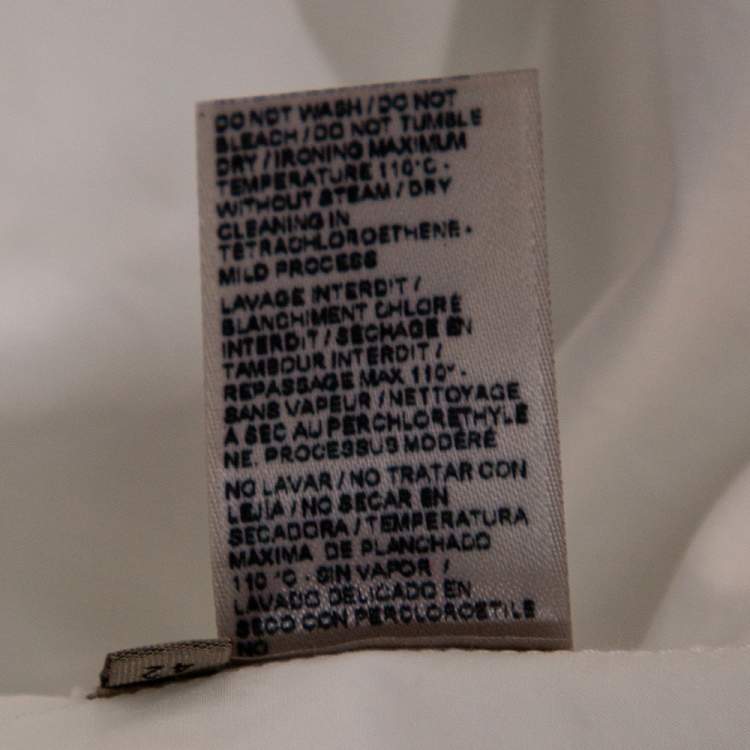 DO NOT WASH / DO NOT
BLEACH / DO NOT TUMBLE
DRY / IRONING MAXIMUM
TEMPERATURE 110°C -
WITHOUT STEAM / DRY
CLEANING IN
TETRACHLOROETHENE -
MILD PROCESS
LAVAGE INTERDIT /
BLANCHIMENT CHLORÉ
INTERDIT / SÉCHAGE EN
TAMBOUR INTERDIT /
REPASSAGE MAX 110° -
SANS VAPEUR / NETTOYAGE
A SEC AU PERCHLORETHYLE
NE. PROCESSUS MODÉRÉ
NO LAVAR / NO TRATAR CON
LEJÍA / NO SECAR EN
SECADORA / TEMPERATURA
MAXIMA DE PLANCHADO
110 °C - SIN VAPOR /
LAVADO DELICADO EN
SECO CON PERCLOROETILE
NO